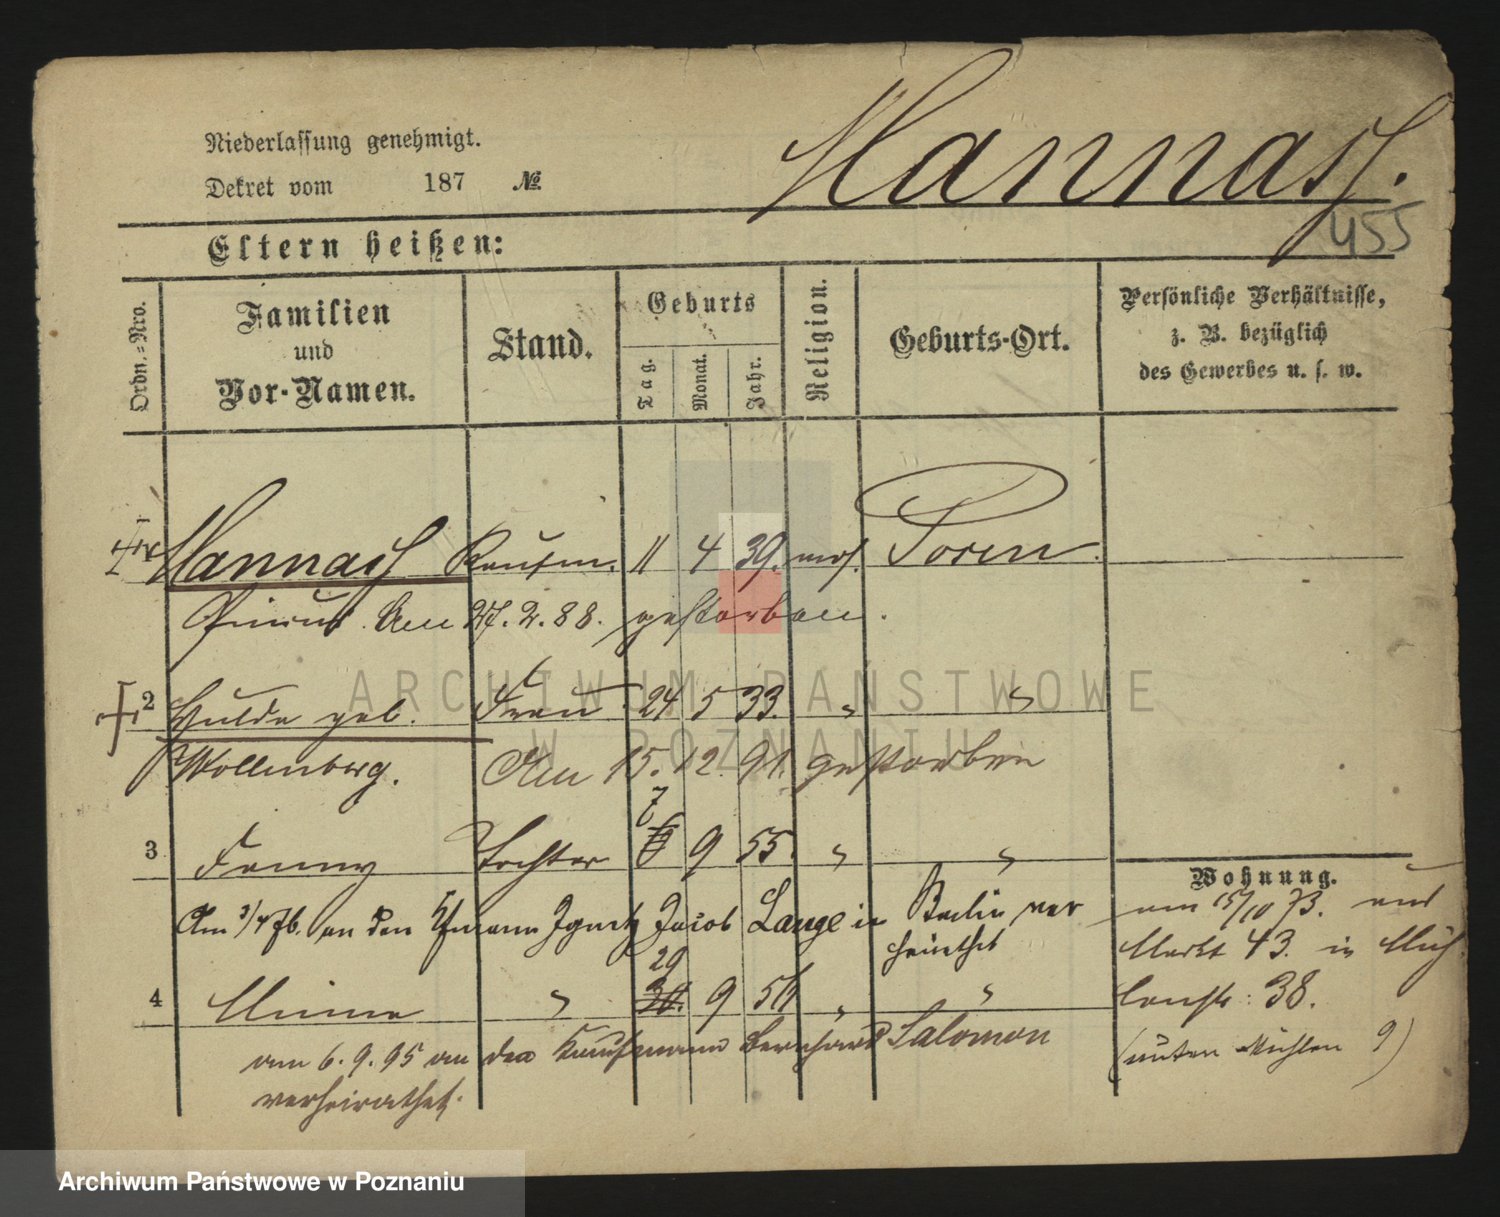 Niederlassung genehmigt.
Dekret vom 187 №
Mannasse.
455
Eltern heißen:
Ordn.=Nro.
Familien
und
Vor-Namen.
Stand.
Geburts
Tag.
Monat.
Jahr.
Religion.
Geburts-Ort.
Persönliche Verhältnisse,
z. B. bezüglich
des Gewerbes u. s. w.
1 Kaufm. 11 4 39. mos. Posen.
Pincus. Am 27. 2. 88. gestorben.
2 Hulda geb. Frau 24 5 33. " "
Wollenberg. Am 15. 12. 91. gestorben
7
3 Fanny Tochter 9 55. " "
Am 3/4 76. an den Kfmann Ignatz Jacob Lange in Berlin ver
heirathet
29
4 Minna " 30. 9 56 " "
am 6. 9. 95 an den Kaufmann Bernhard Salomon
verheirathet.
Wohnung.
am 15/10 73. von
Markt 43. in Müh
lenstr: 38.
(unten Mühlen 9)
ARCHIWUM PAŃSTWOWE
W POZNANIU
Archiwum Państwowe w Poznaniu